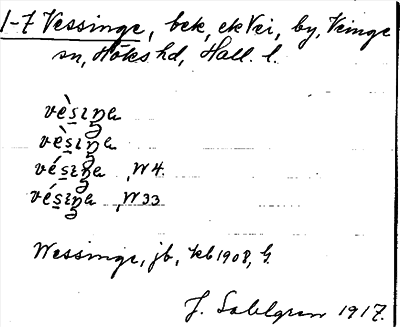 1-7 Vessinge, bek, ekVei, by, Veinge
sn, Höks hd, Hall. l.
vèsiŋa
vèsiŋa
vésiŋa , W 4.
vésiŋa , W 33
Wessinge, jb, kb 1908, G.
J. Sahlgren 1917.